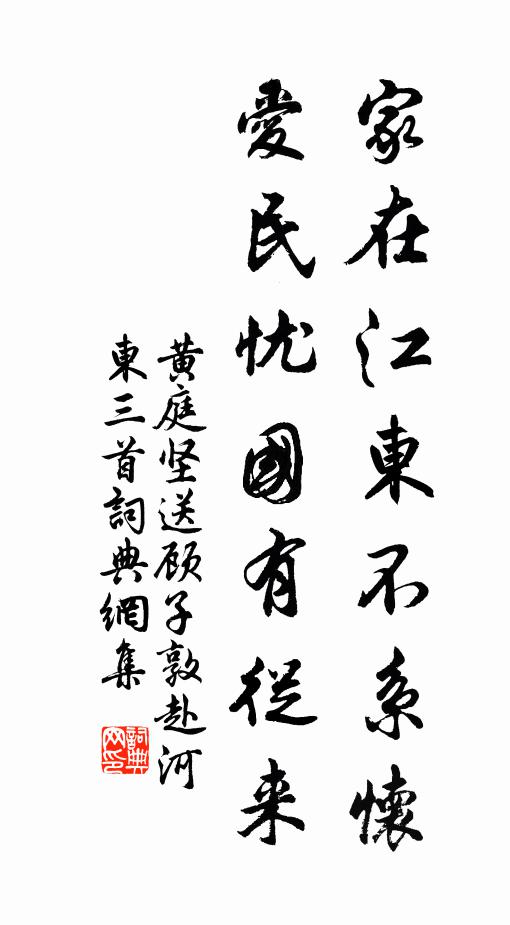 家在江東不系懷
愛民忧國有從来
黄庭坚送顾子敦赴河
東三首詞典網集
詞典网印